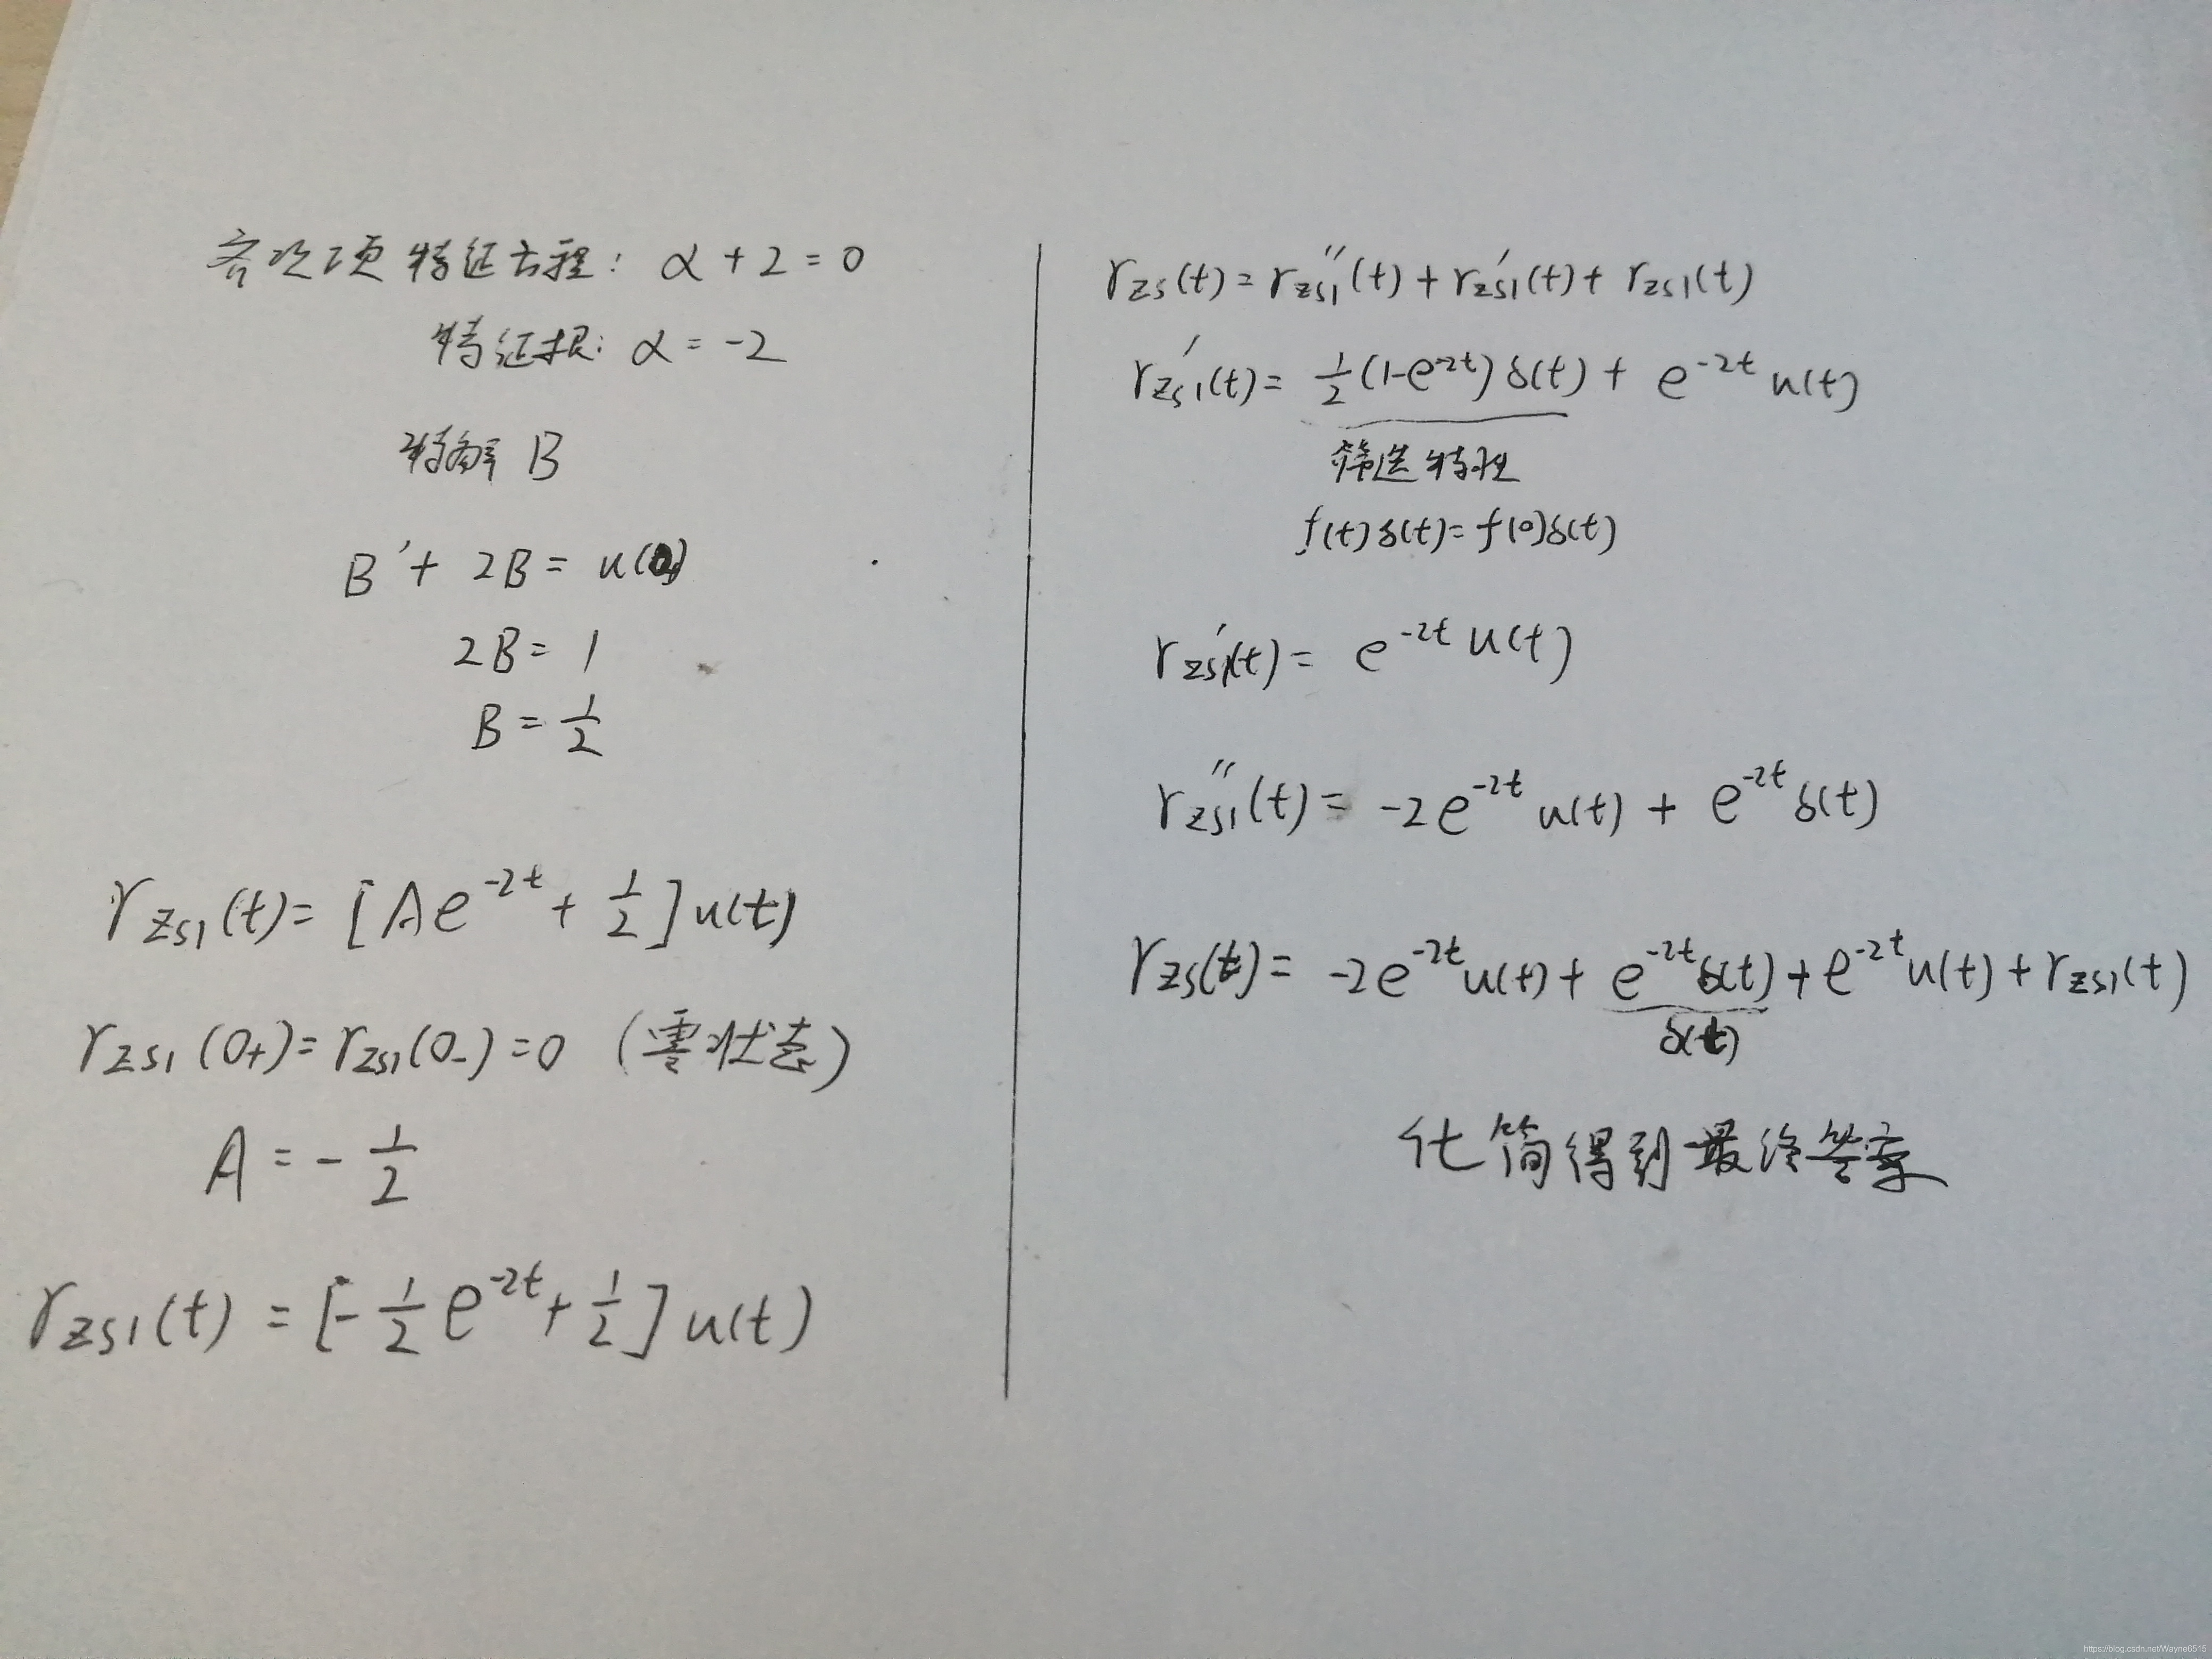 齐次项 特征方程: α + 2 = 0
特征根: α = -2
特解 B
B' + 2B = u(t)
2B = 1
B = 1/2
r_zs1(t) = [Ae^{-2t} + 1/2]u(t)
r_zs1(0+) = r_zs1(0-) = 0 (零状态)
A = -1/2
r_zs1(t) = [-1/2 e^{-2t} + 1/2]u(t)
r_zs(t) = r_zs1''(t) + r_zs1'(t) + r_zs1(t)
r_zs1'(t) = 1/2(1-e^{-2t})δ(t) + e^{-2t}u(t)
筛选特性
f(t)δ(t) = f(0)δ(t)
r_zs1'(t) = e^{-2t}u(t)
r_zs1''(t) = -2e^{-2t}u(t) + e^{-2t}δ(t)
r_zs(t) = -2e^{-2t}u(t) + e^{-2t}δ(t) + e^{-2t}u(t) + r_zs1(t)
δ(t)
化简得到最终答案
https://blog.csdn.net/Wayne6515